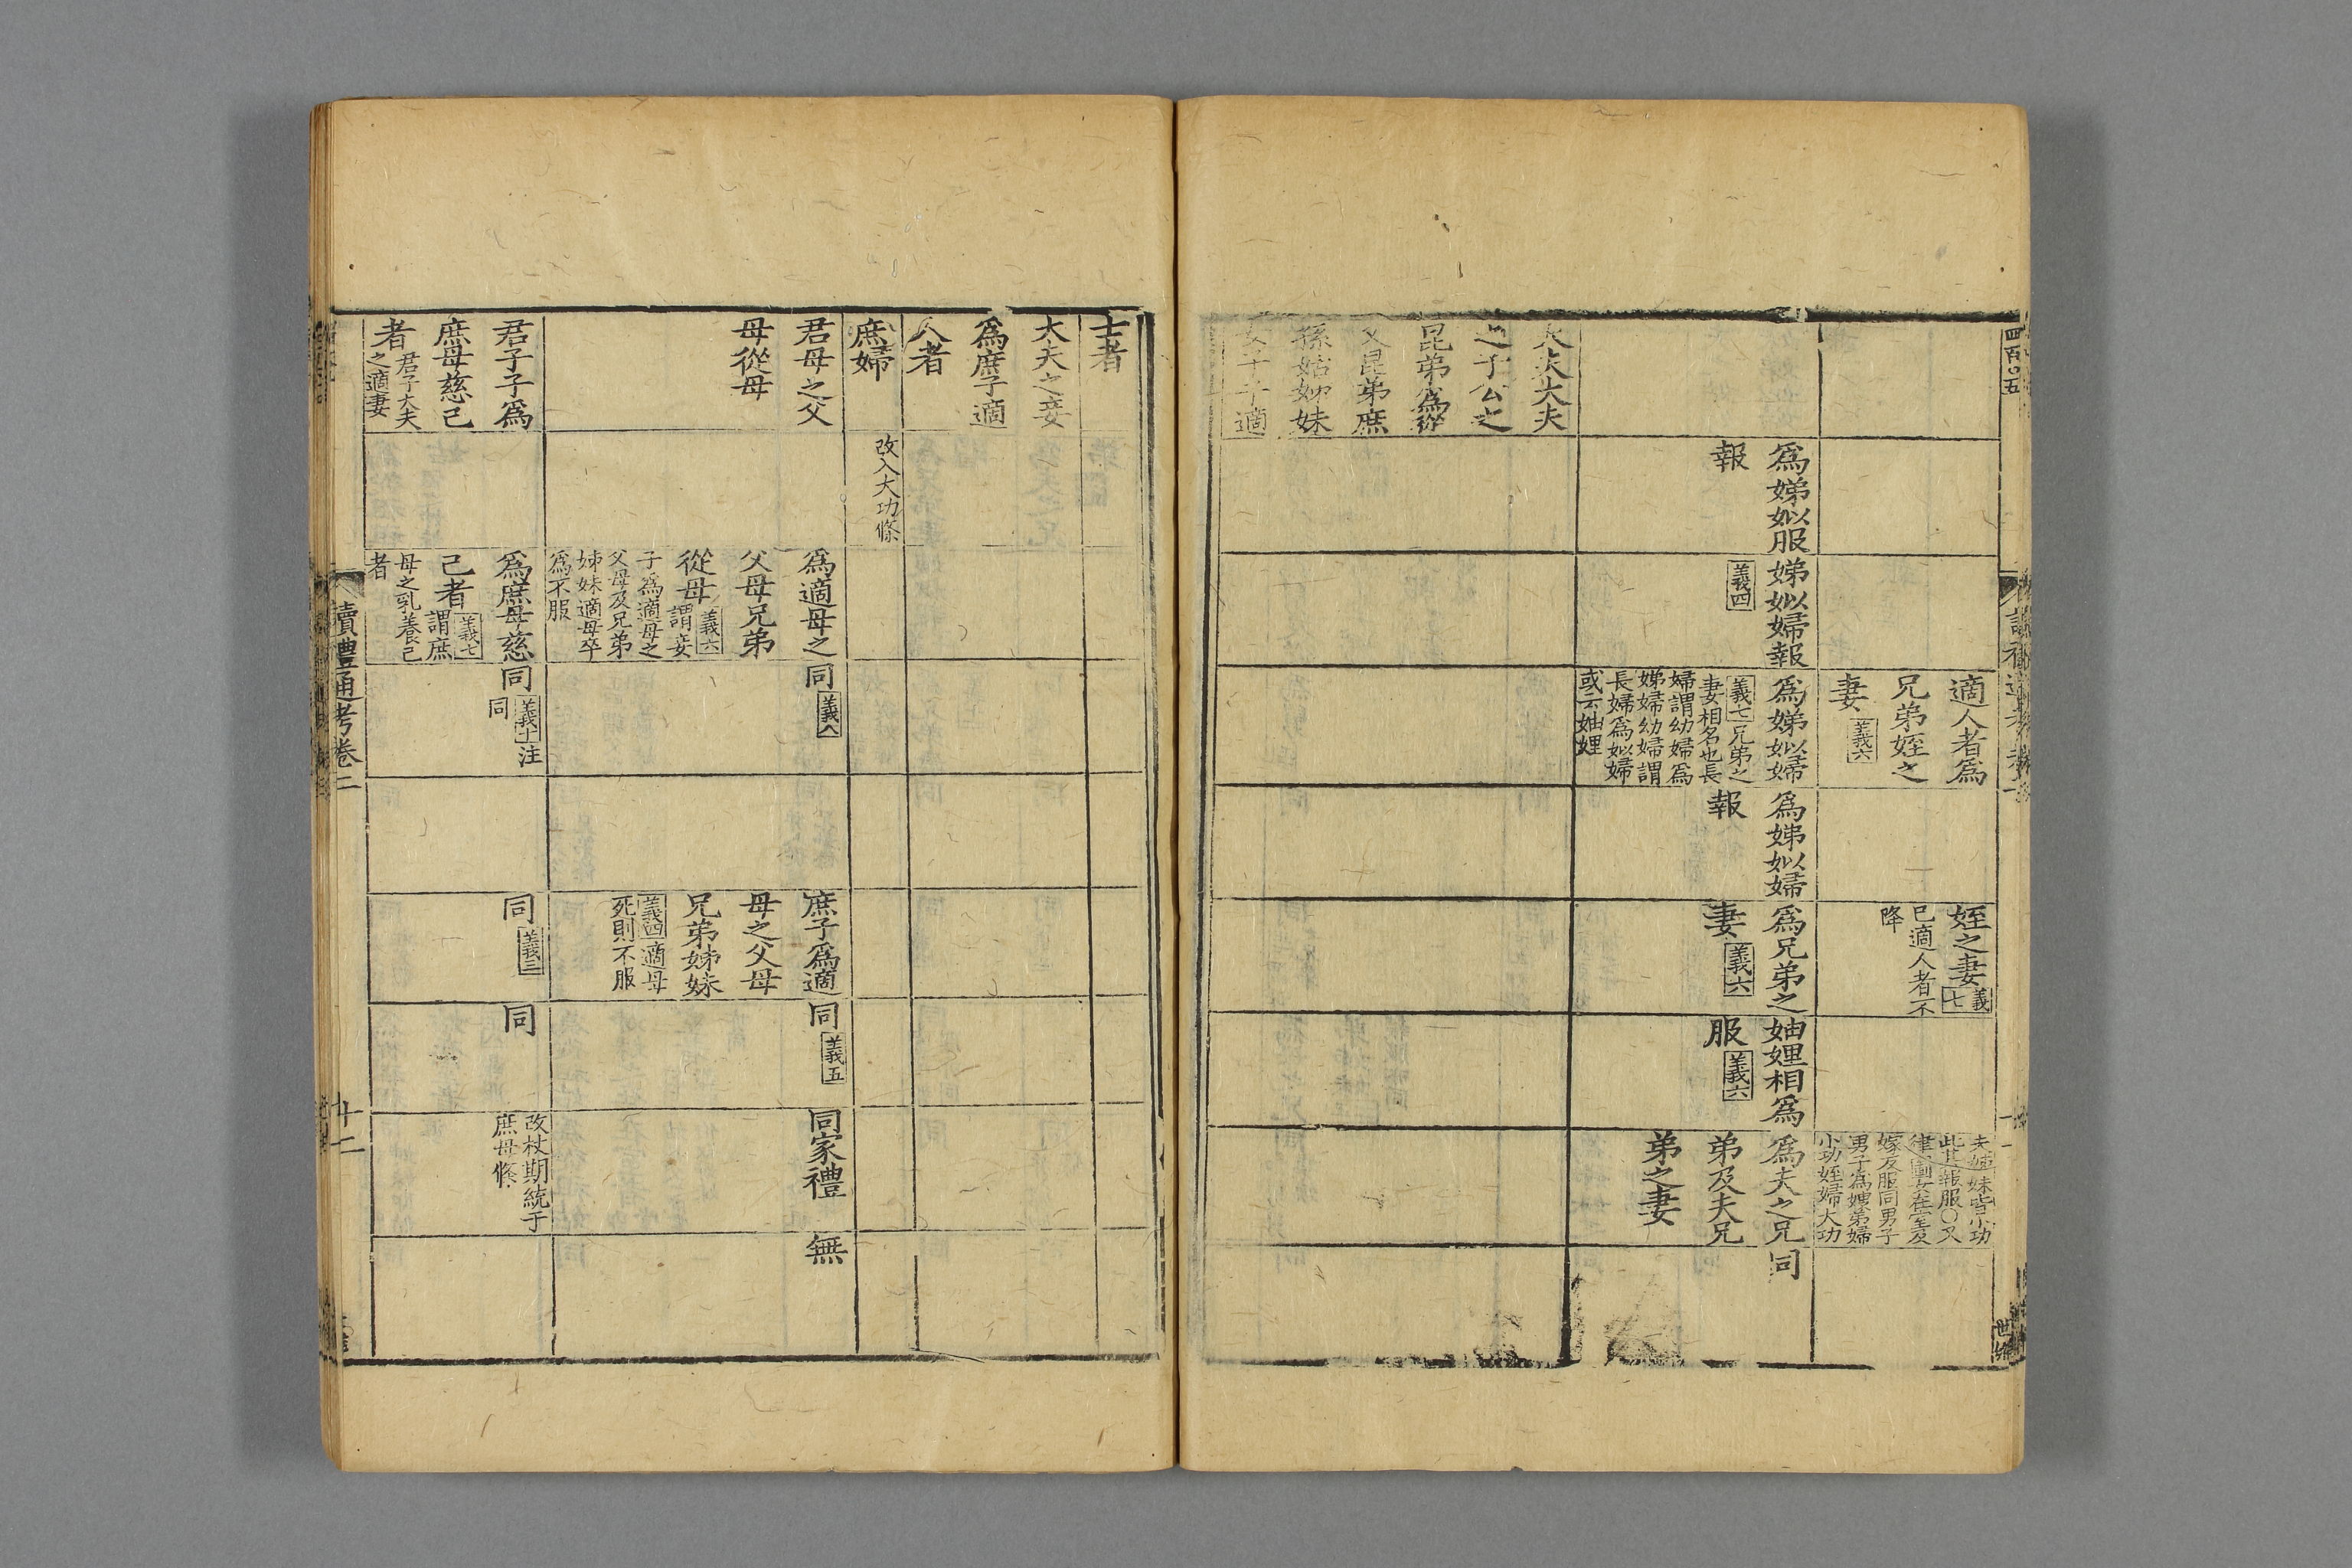 四百〇五
適人者爲
兄弟姪之
妻義六
姪之妻義七
已適人者不
降
夫姊妹皆小功
此其報服〇又
律圖女在室及
嫁反服同男子
男子爲姊弟婦
小功姪婦大功
爲娣姒服
報
娣姒婦報
義四
爲娣姒婦
義七兄弟之
妻相名也長
婦謂幼婦爲
娣婦幼婦謂
長婦爲姒婦
或云妯娌
爲娣姒婦
報
爲兄弟之
妻義六
妯娌相爲
服義六
爲夫之兄
弟及夫兄
弟之妻
同
大夫大夫
之子公之
昆弟爲從
父昆弟庶
孫姑姊妹
女子子適
士者
大夫之妾
爲庶子適
人者
庶婦
改入大功條
君母之父
母從母
爲適母之
父母兄弟
從母義六謂妾
子爲適母之
父母及兄弟
姊妹適母卒
爲不服
同義八
庶子爲適
母之父母
兄弟姊妹
義四適母
死則不服
同義五
同家禮
無
君子子爲
庶母慈己
者君子大夫
之適妻
爲庶母慈
己者義七謂庶
母之乳養己
者
同義十注
同
同義三
同
改杖期統于
庶母條
讀禮通考卷二
十二